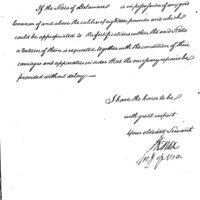 If the State of Delaware is in possession of any good
Cannon of and above the calibre of eighteen pounds and which
could be appropriated to the fortifications within the said State
a return of them is requested, together with the condition of their
carriages and apparatus in order that the necessary repairs be
provided without delay—
I have the honor to be
with great respect
Your obedient Servant
HKnox
Secy of War